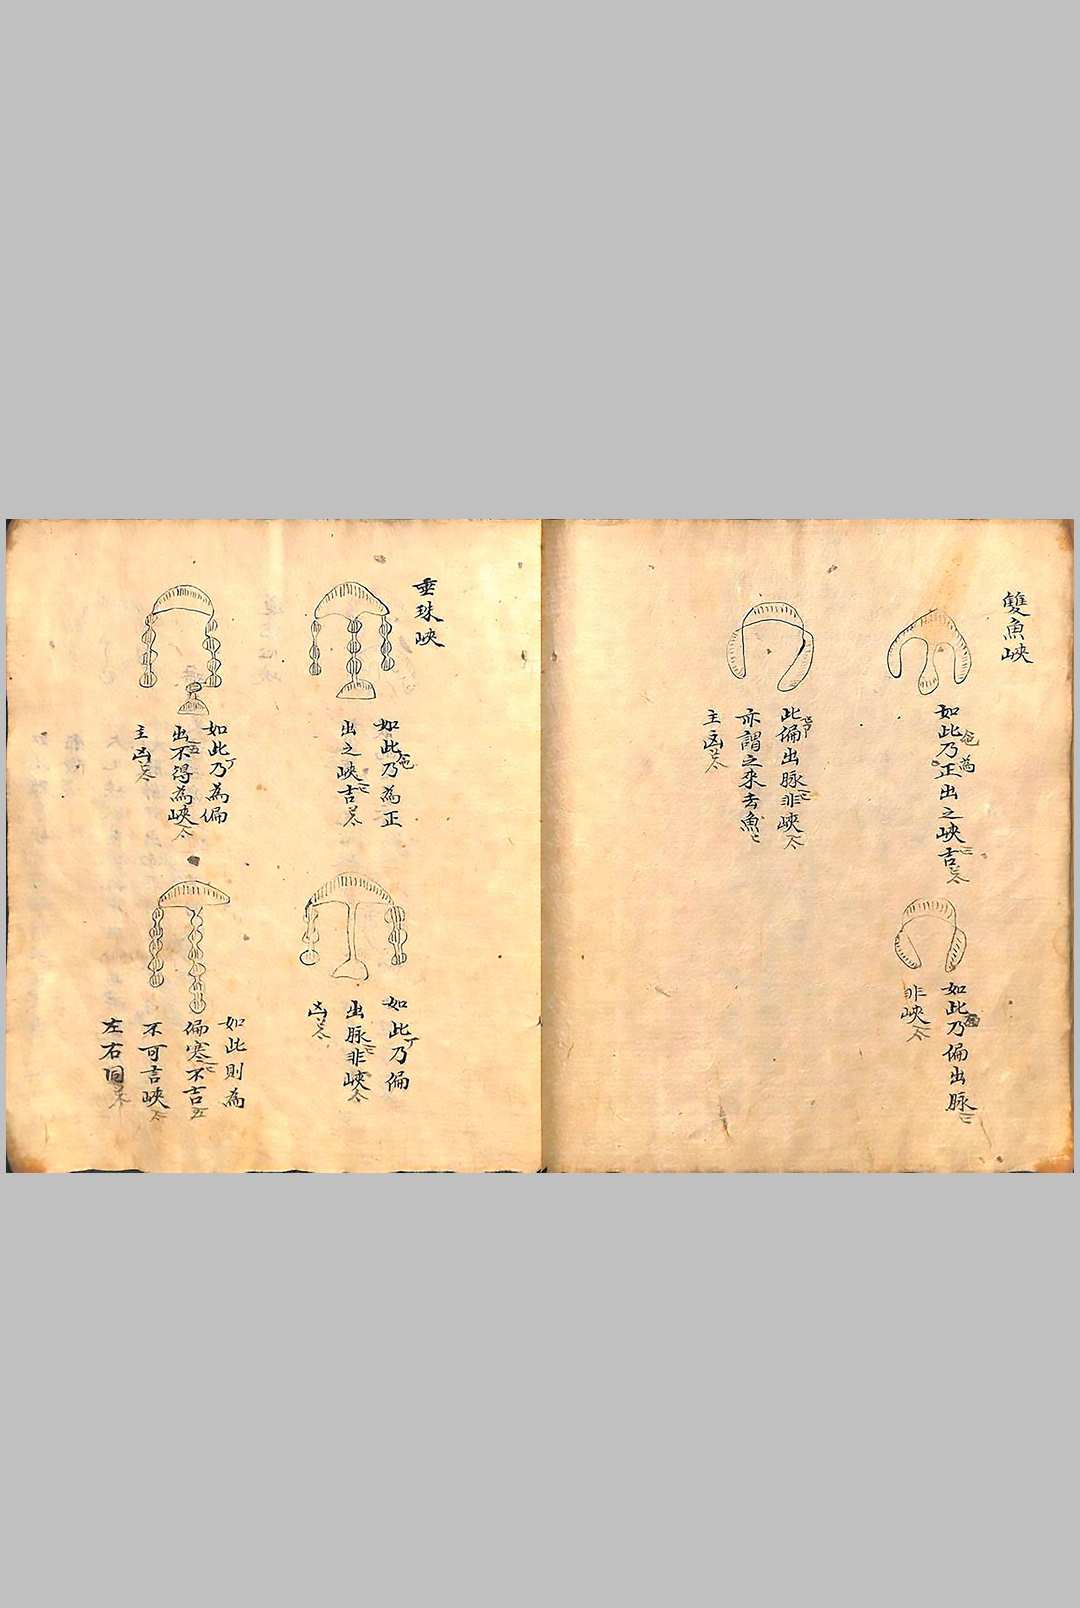 雙魚峽
如此乃為正出之峽吉
如此乃偏出脉
非峽
此偏出脉非峽
亦謂之來去魚
主凶
垂珠峽
如此乃為正
出之峽吉
如此乃偏
出脉非峽
凶
如此乃為偏
出不得為峽
主凶
如此則為
偏寒不吉
不可言峽
左右同